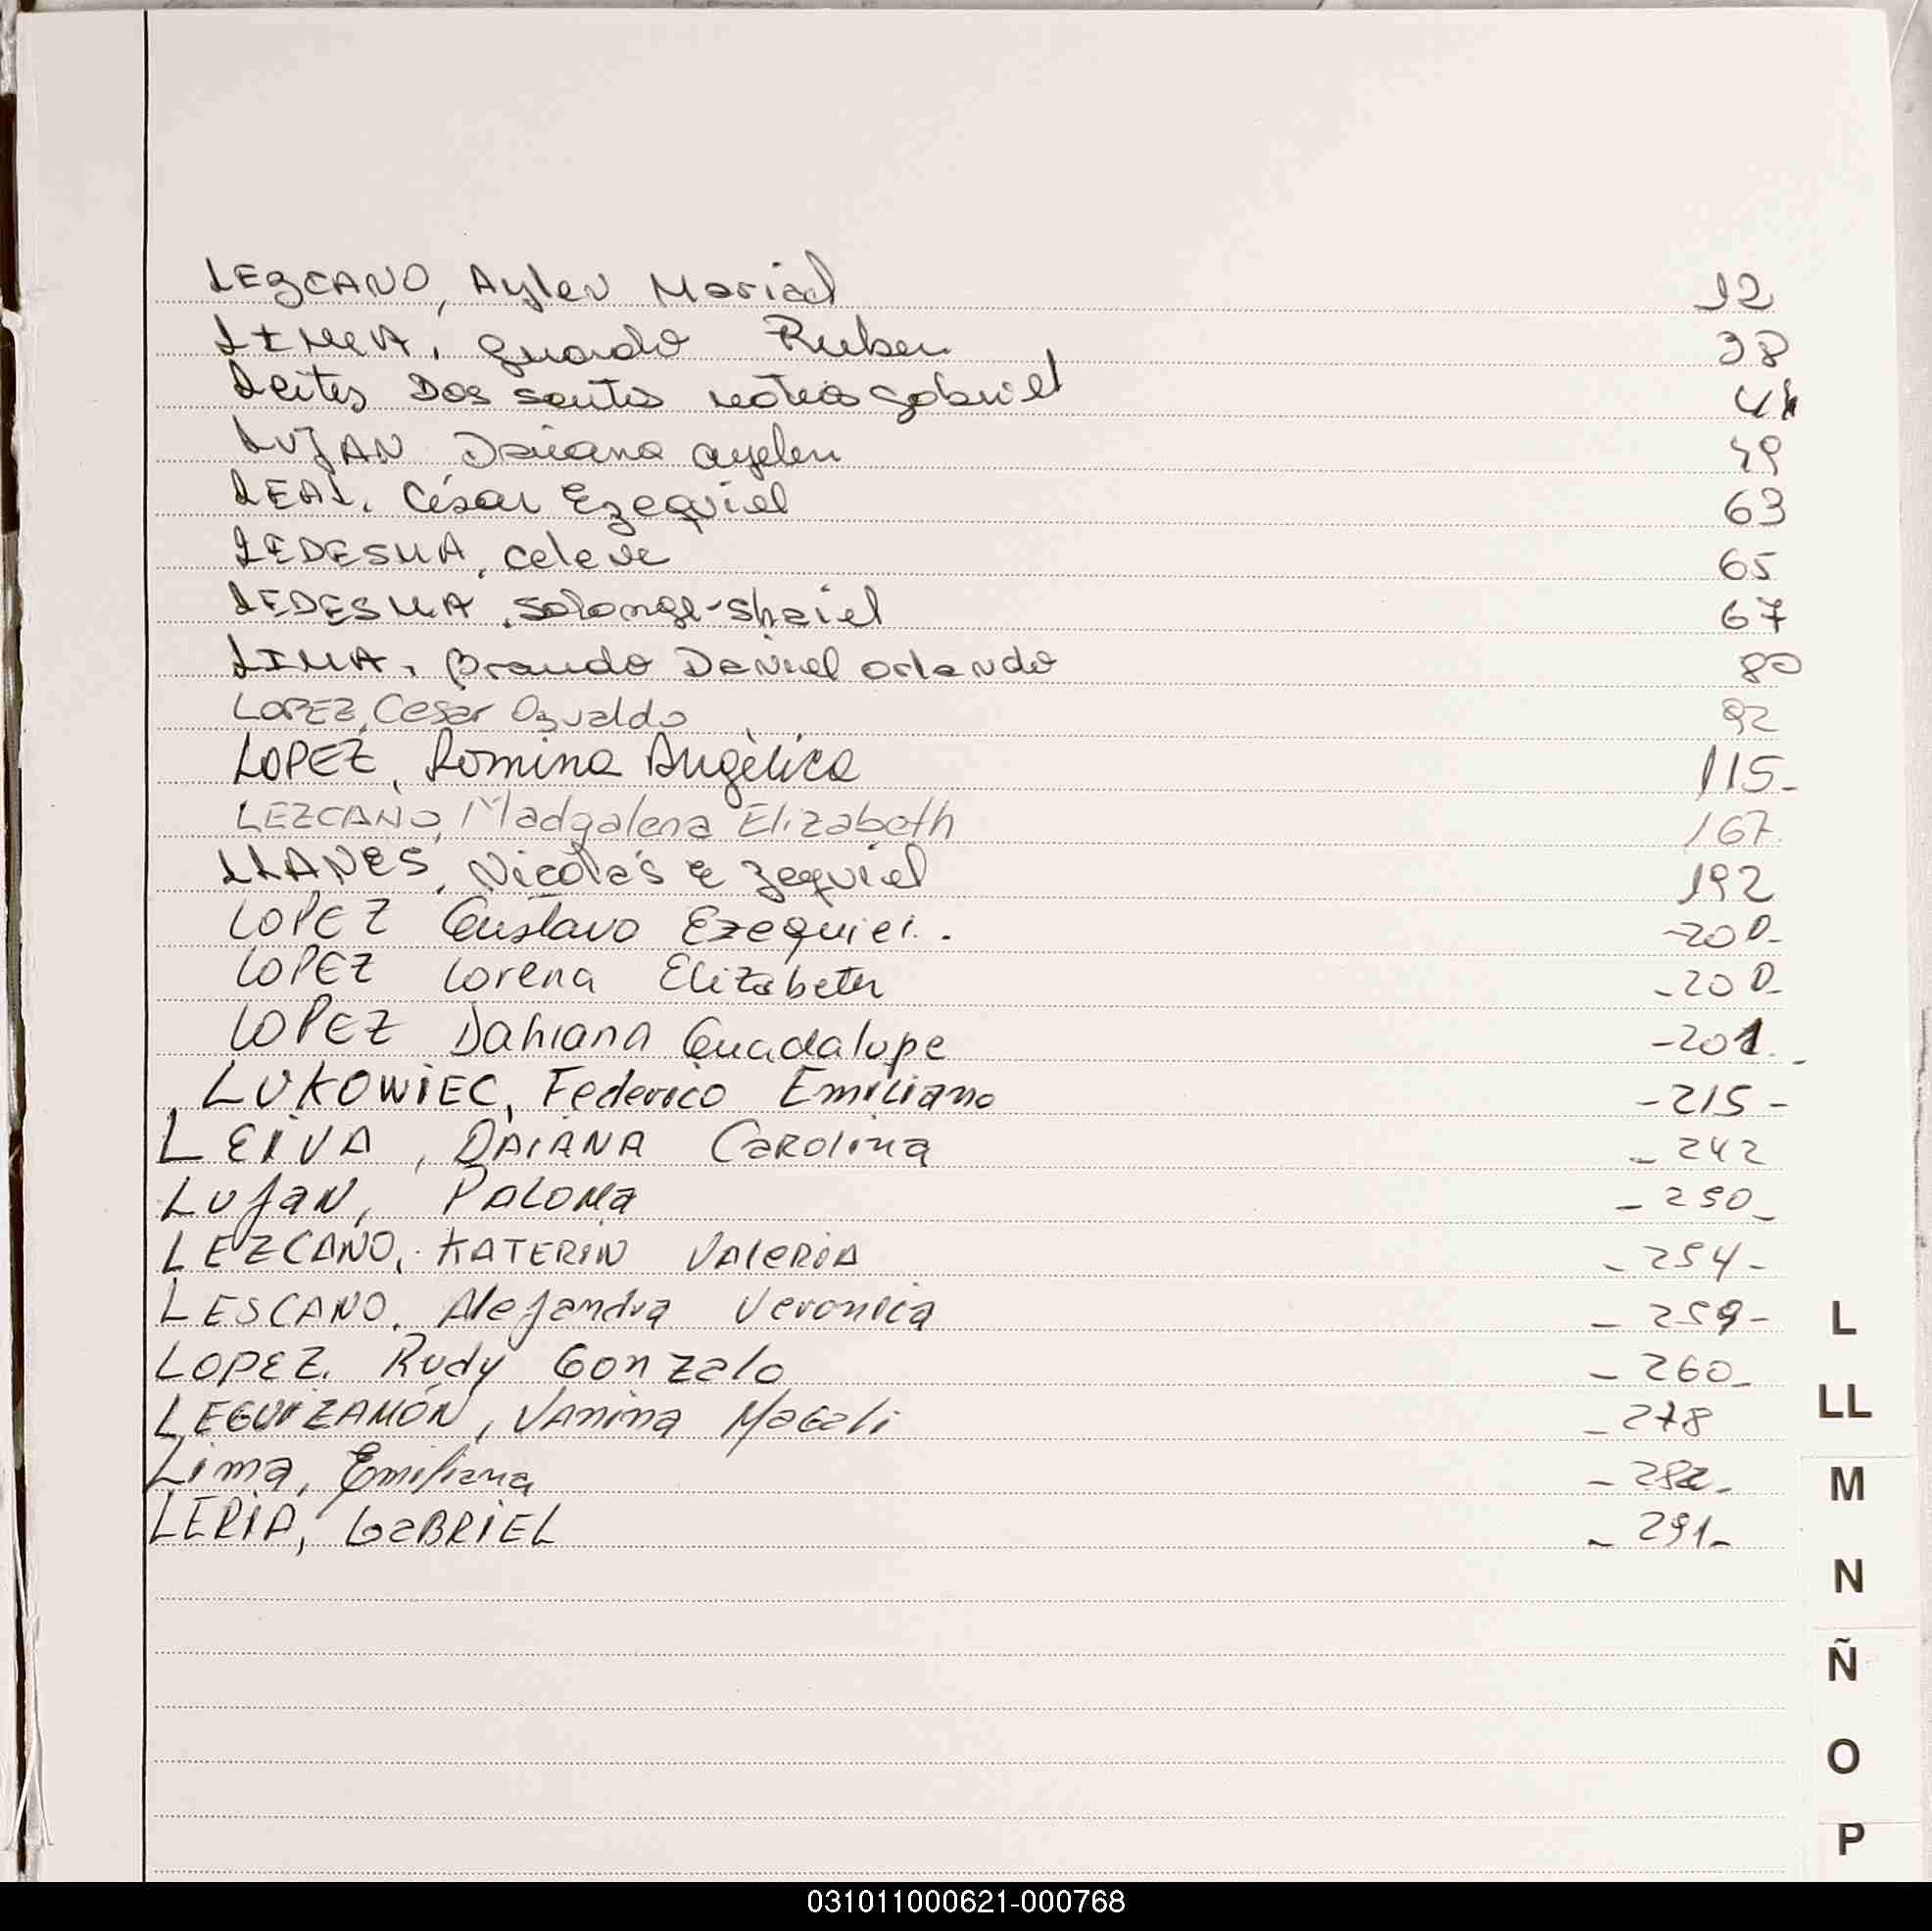 LEZCANO, Aylen Mariel 12
LIMA, Ruben 38
Leites Dos santos matias gabriel 44
LUJAN Daiana ayelen 49
LEAL, César Ezequiel 63
LEDESMA, celeve 65
LEDESMA, solange-shaiel 67
LIMA, Brando Daniel orlando 80
LOPEZ, Cesar Ozvaldo 92
LOPEZ, Romina Angèlica 115-
LEZCANO, Madgalena Elizabeth 167
LLANES, Nicolás Ezequiel 192
LOPEZ Gustavo Ezequiel. -200-
LOPEZ Lorena Elizabeth -200-
LOPEZ Dahiana Guadalupe -201.-
LUKOWIEC, Federico Emiliano -215-
LEIVA, DAIANA Carolina - 242
Lujan, Paloma - 250-
LEZCANO, KATERIN Valeria - 254-
LESCANO, Alejandra Veronica - 259-
LOPEZ, Rudy Gonzalo - 260-
LEGUIZAMÓN, Vanina Magali - 278
Lima, Emiliana - 282-
LERIA, GaBRIEL - 291-
L
LL
M
N
Ñ
O
P
031011000621-000768